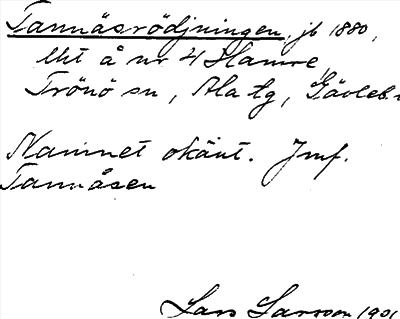 Tannäsrödjningen, jb 1880,
litt å nr 4 Hamre,
Trönö sn, Ala tg, Gävleb.
Namnet okänt. Jmf.
Tannåsen
Lars Larsson 1901